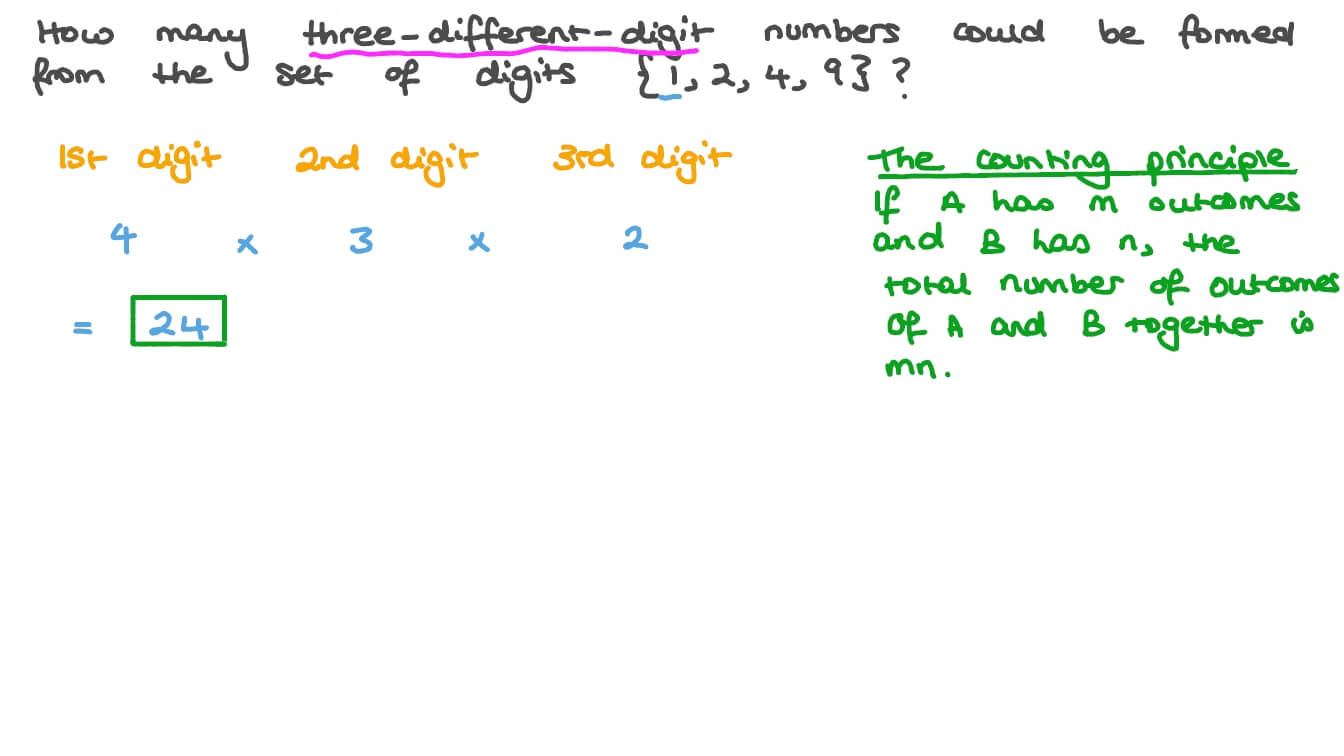 How many three-different-digit numbers could be formed
from the set of digits {1, 2, 4, 9} ?
1st digit 2nd digit 3rd digit
4 x 3 x 2
= 24
The counting principle
If A has m outcomes
and B has n, the
total number of outcomes
of A and B together is
mn.